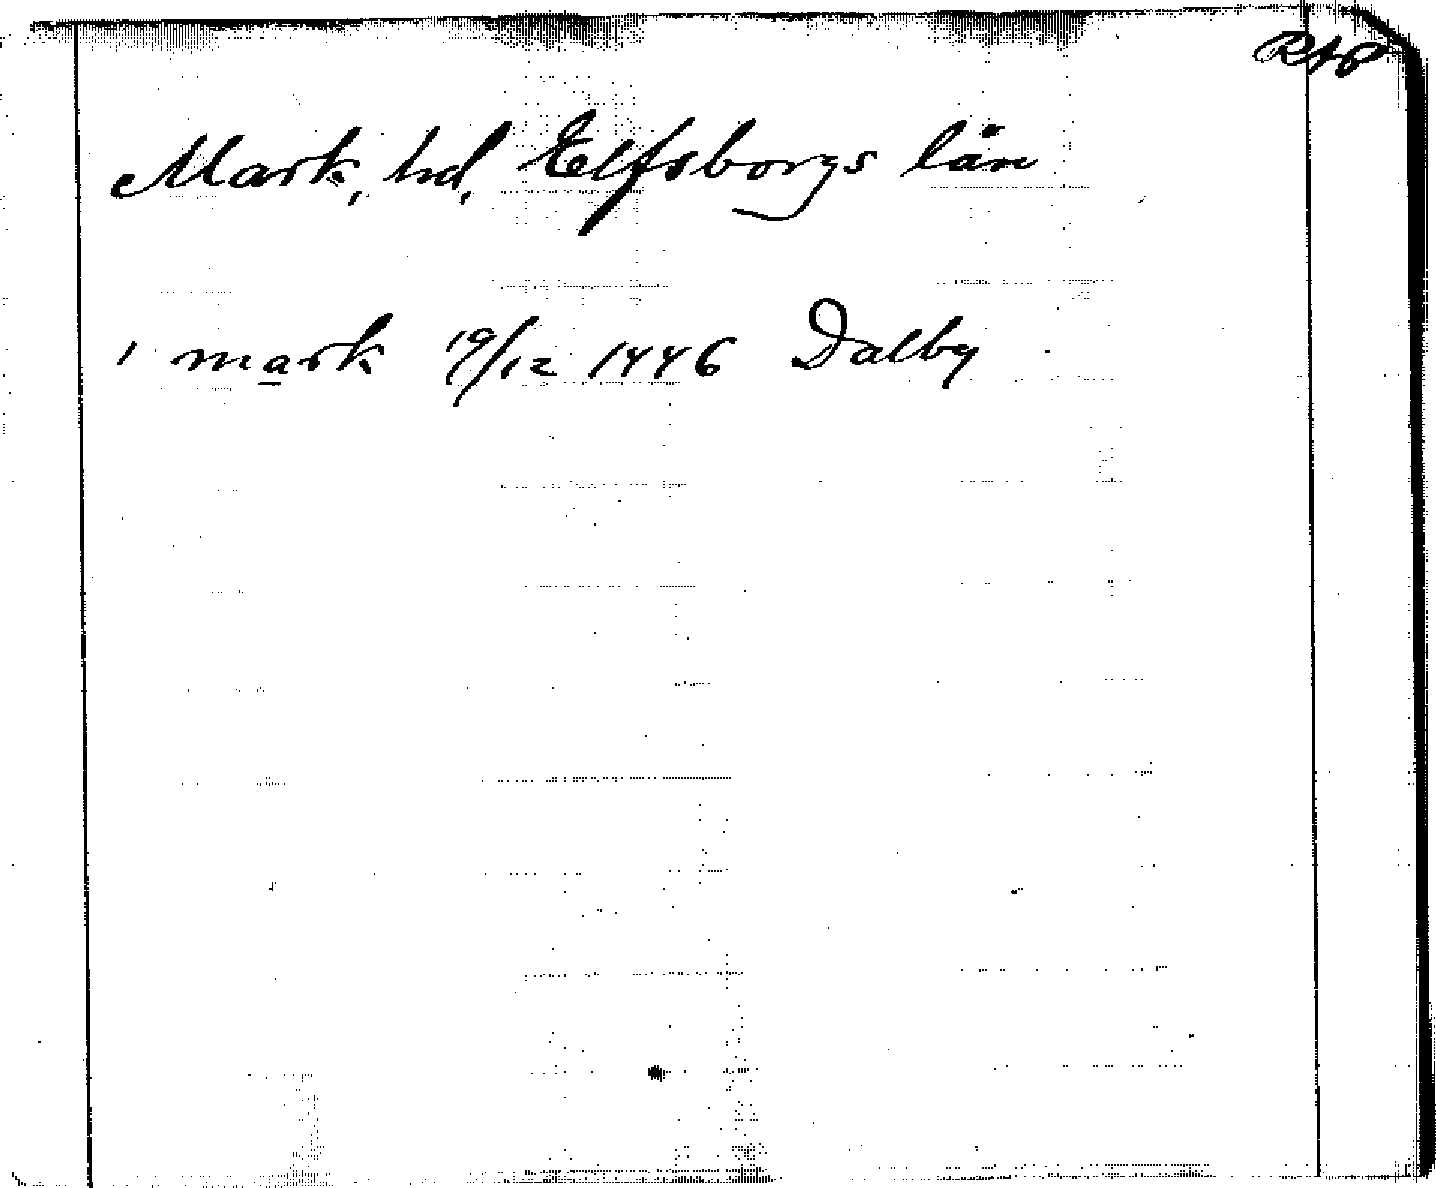 RAP
Mark, hd, Elfsborgs län
i mark 19/12 1446 Dalby